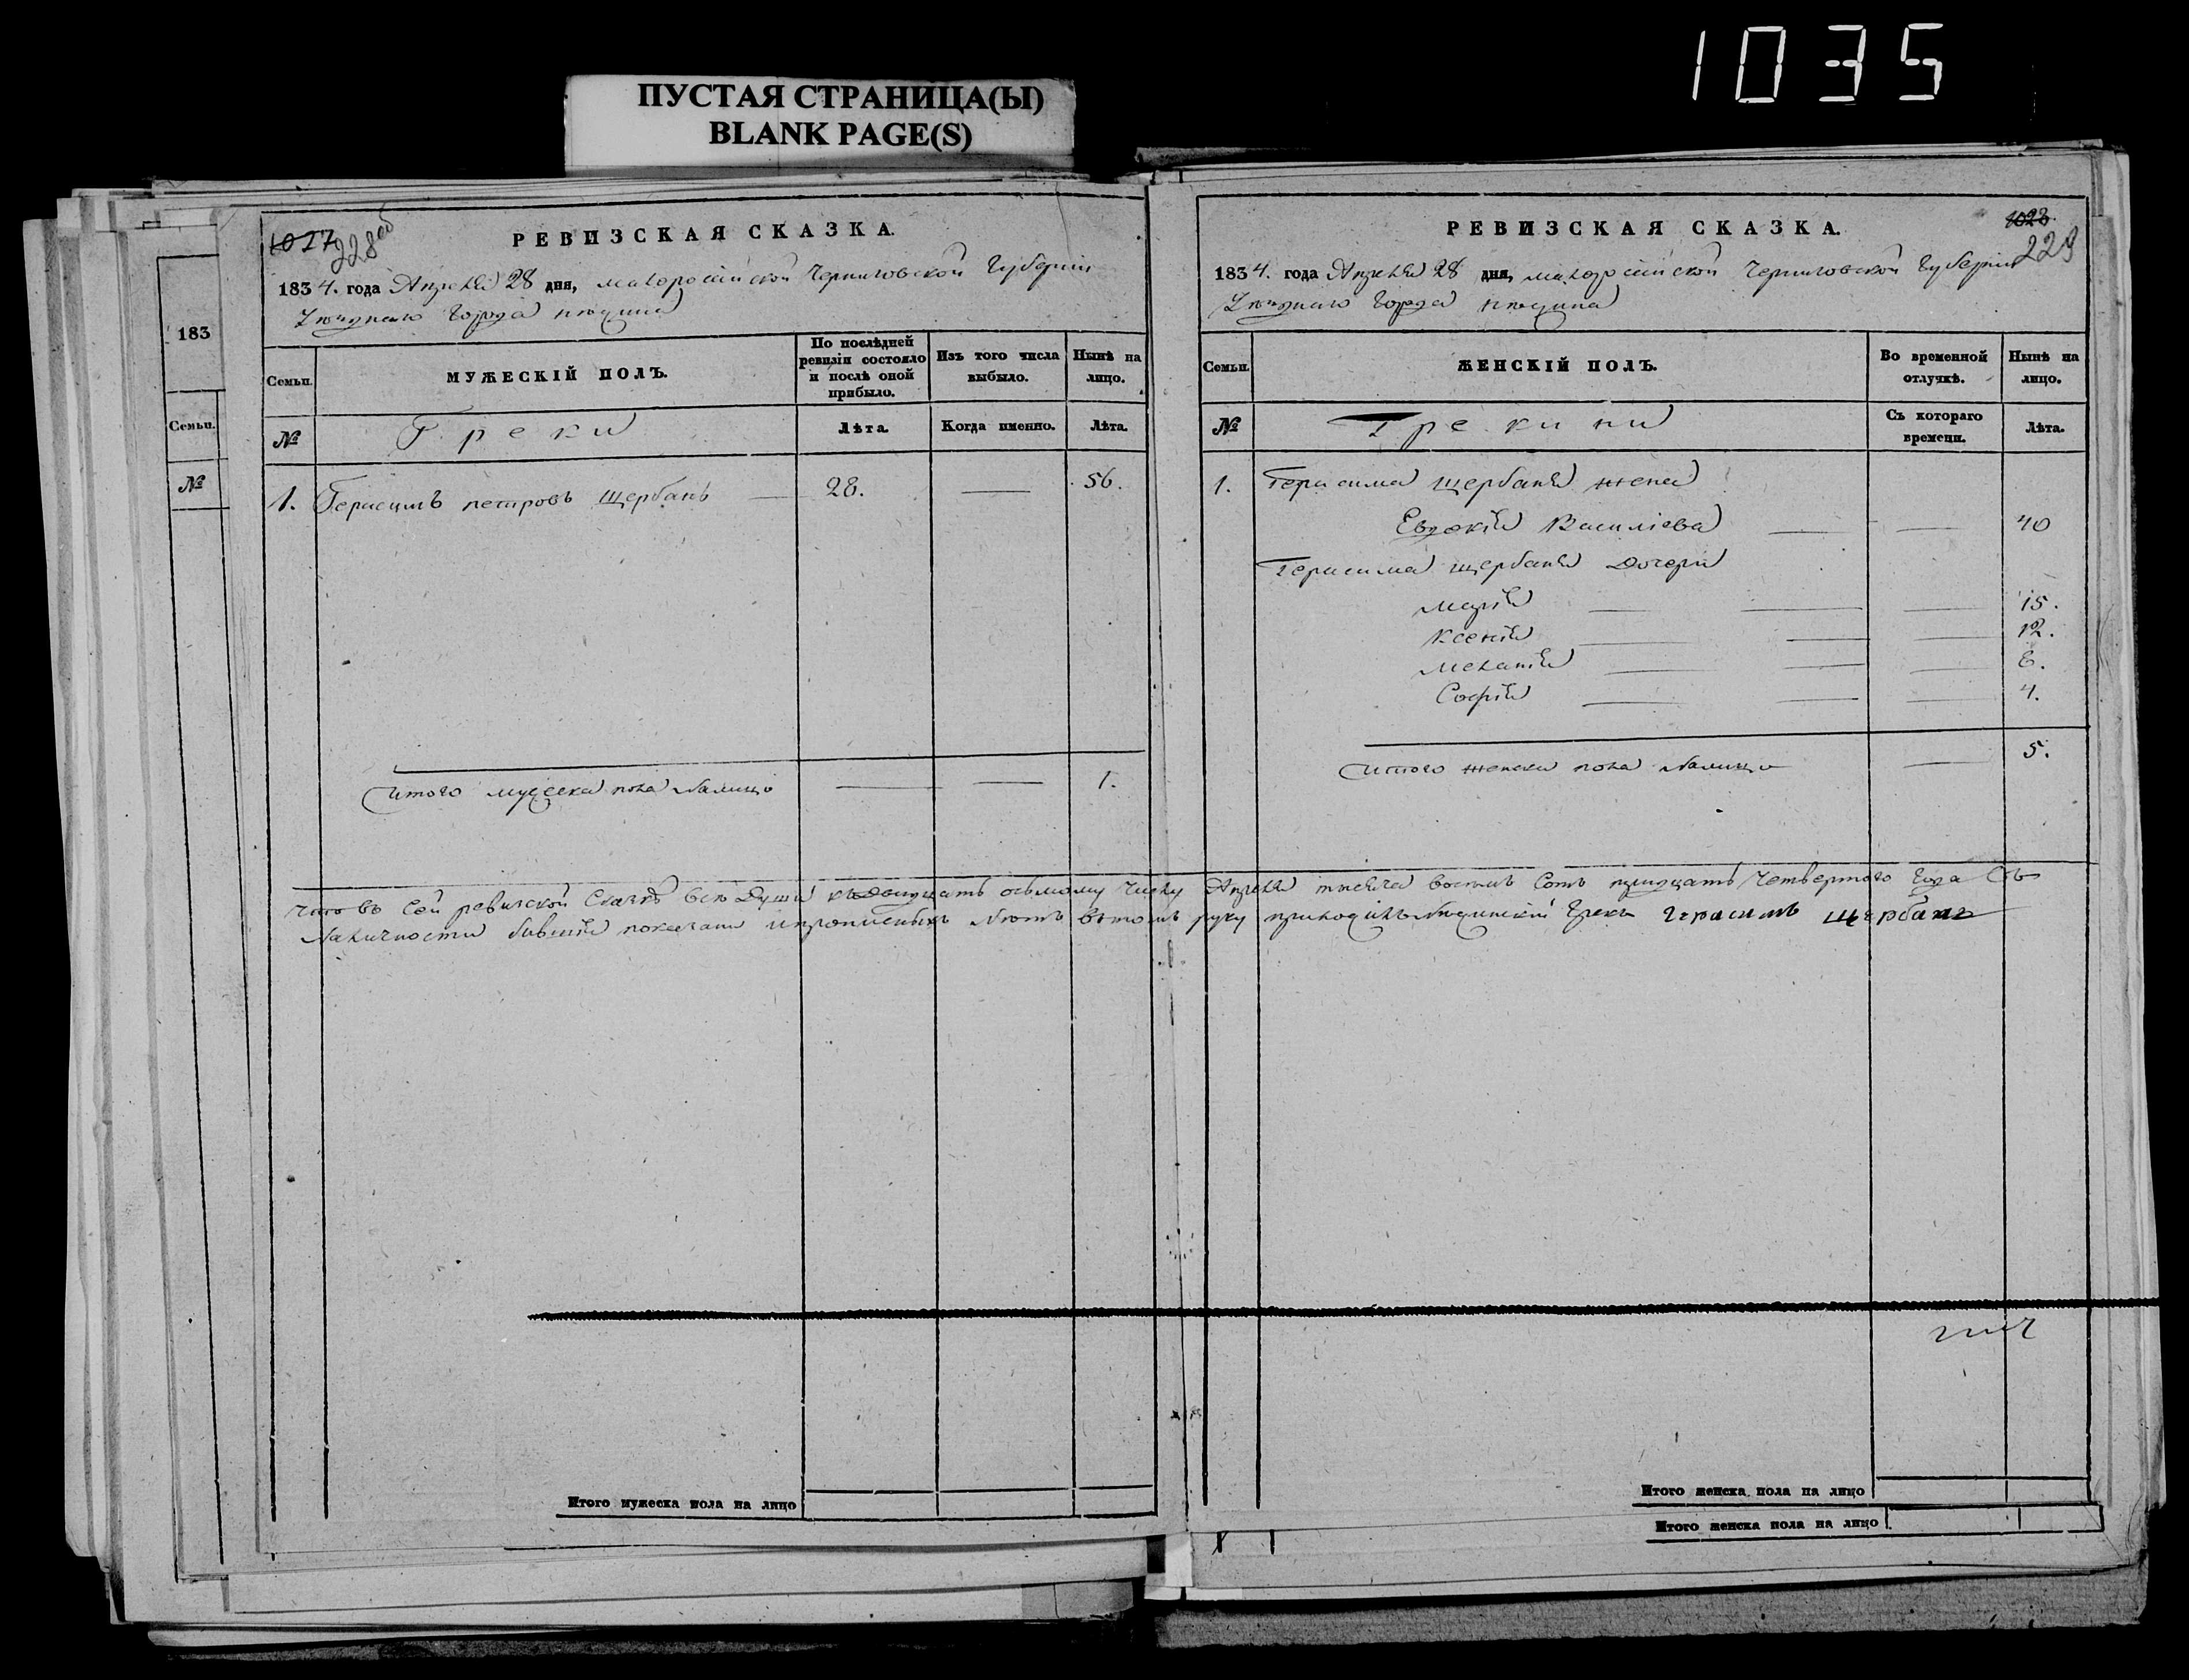 1035
ПУСТАЯ СТРАНИЦА(Ы)
BLANK PAGE(S)
183
Семьи.
№
1027
228об
РЕВИЗСКАЯ СКАЗКА.
1834. года Апреля 28 дня, малоросійской Черниговской Губерніи
Уезднаго Города Нежина
Семьи.
МУЖЕСКІЙ ПОЛЪ.
По послѣдней ревизіи состояло и послѣ оной прибыло.
Изъ того числа выбыло.
Нынѣ на лицо.
№
Греки
Лѣта.
Когда именно.
Лѣта.
1. Герасимъ петровъ Щербань — 28. — 56.
Итого мужеска пола налицо — — 1.
1028
229
РЕВИЗСКАЯ СКАЗКА.
1834. года Апреля 28 дня, малоросійской Черниговской Губерніи
Уезднаго Города Нежина
Семьи.
ЖЕНСКІЙ ПОЛЪ.
Во временной отлучкѣ.
Нынѣ на лицо.
№
Грекини
Съ котораго времени.
Лѣта.
1. Герасима Щербаня жена
Евдокія Василіева — — 40
Герасима Щербаня Дочери
Марія — — — 15.
Ксенія — — — 12.
Меланія — — — 8.
Софія — — — 4.
Итого женска пола налицо — 5.
Что въ Сей ревизской Сказке все Души къ двадцать осьмому числу Апреля тысяча восемъ Сотъ тридцать Четвертого Года Съ
Наличности бывшія показани и прописныхъ Нетъ въ томъ руку приложилъ Нежинский Грекъ Герасимъ Щербань
Итого мужеска пола на лицо
Итого женска пола на лицо
Итого женска пола на лицо